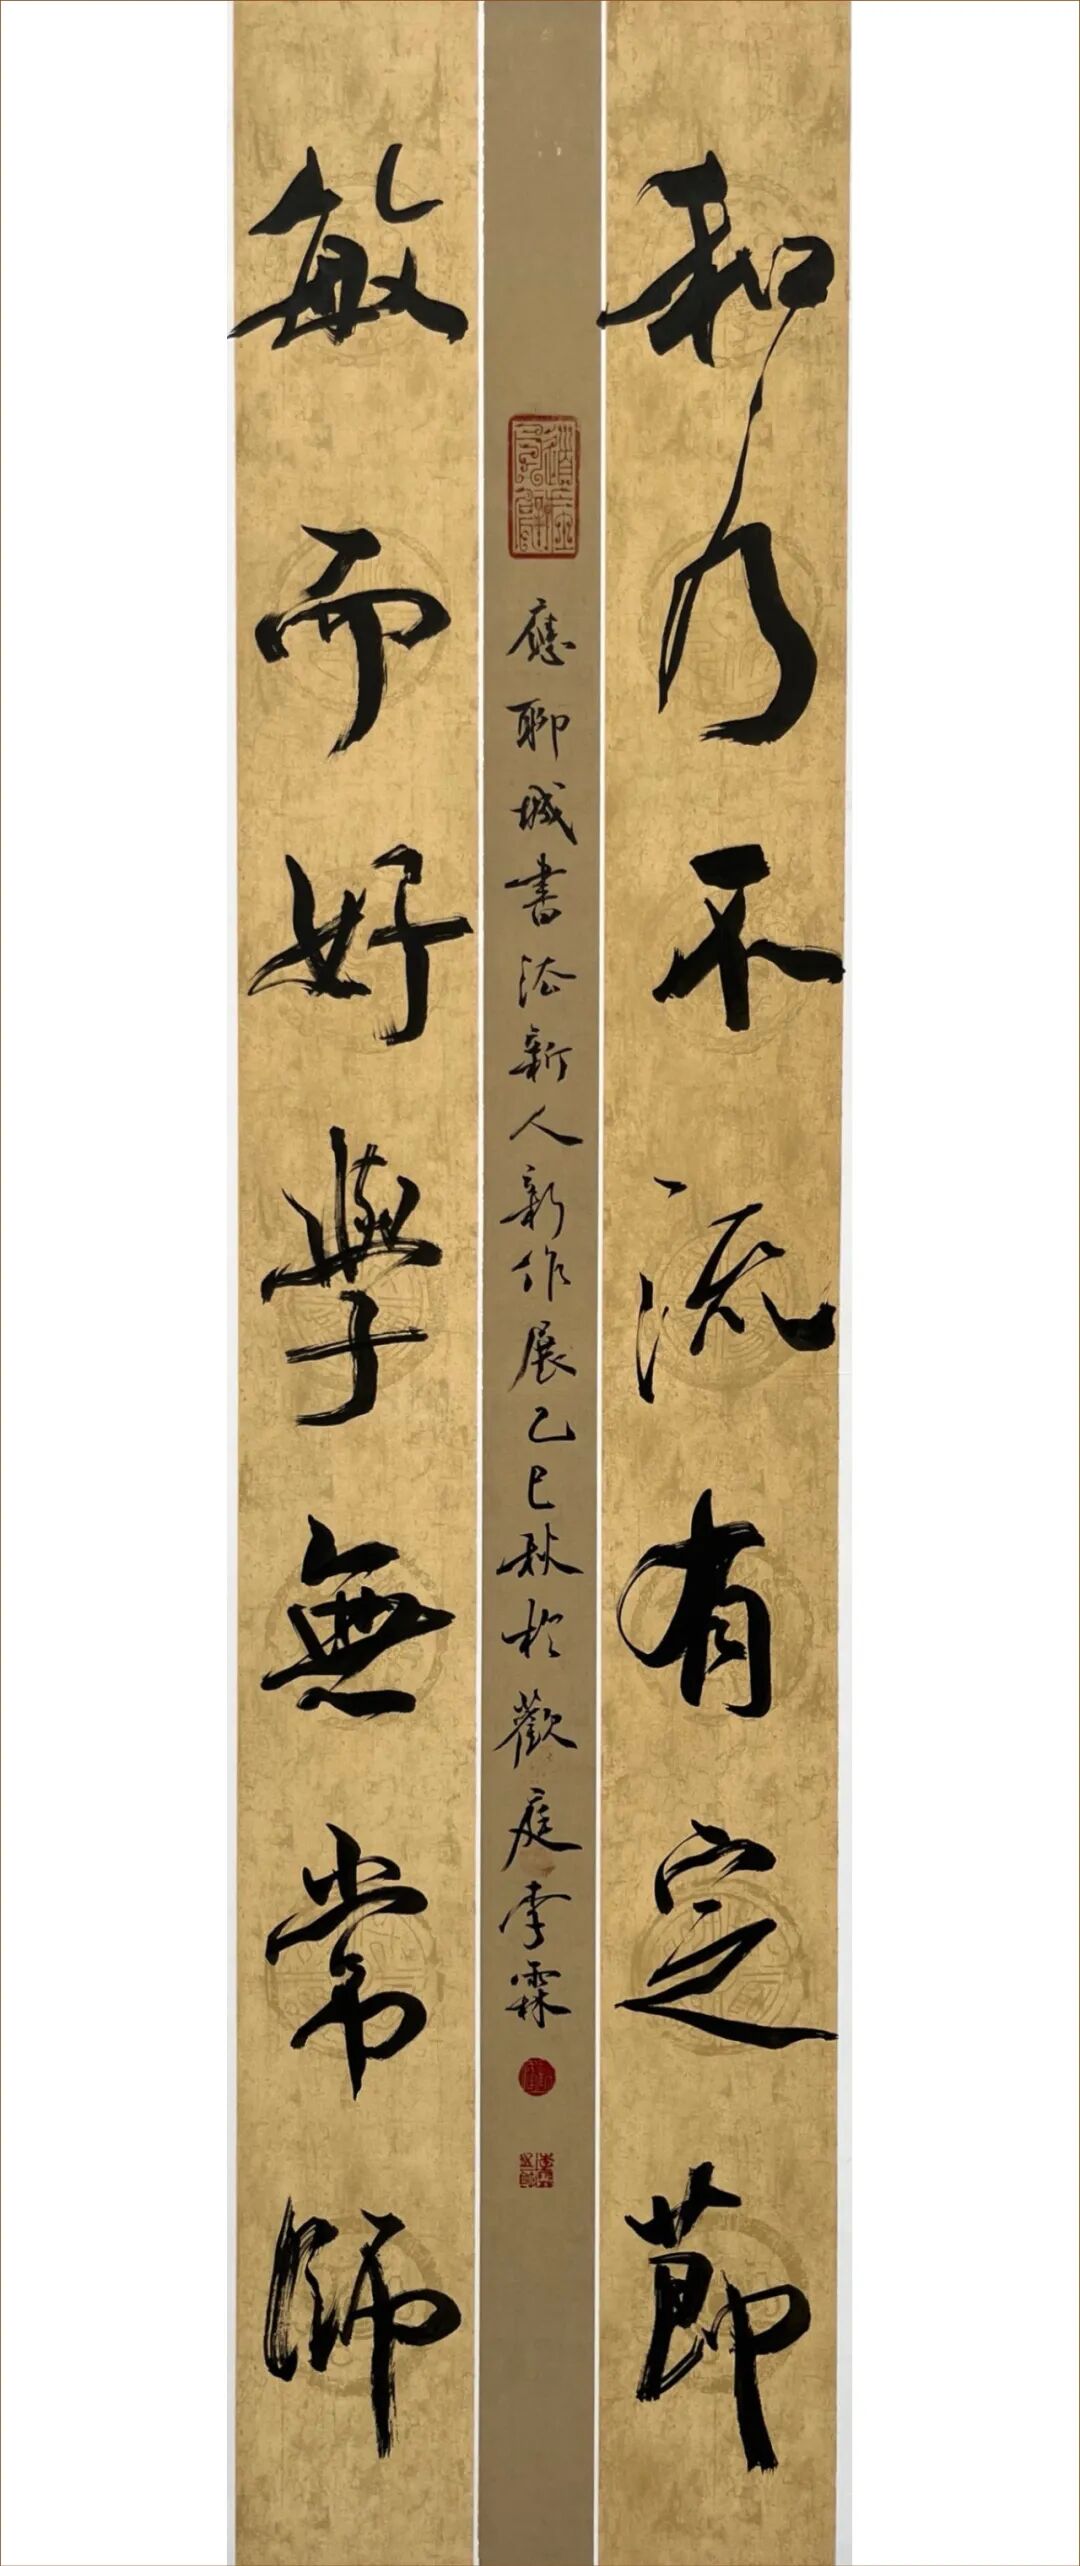 和乃不流有定節
應聊城書法新人新作展乙巳秋於歡庭李霖
敏而好學無常師